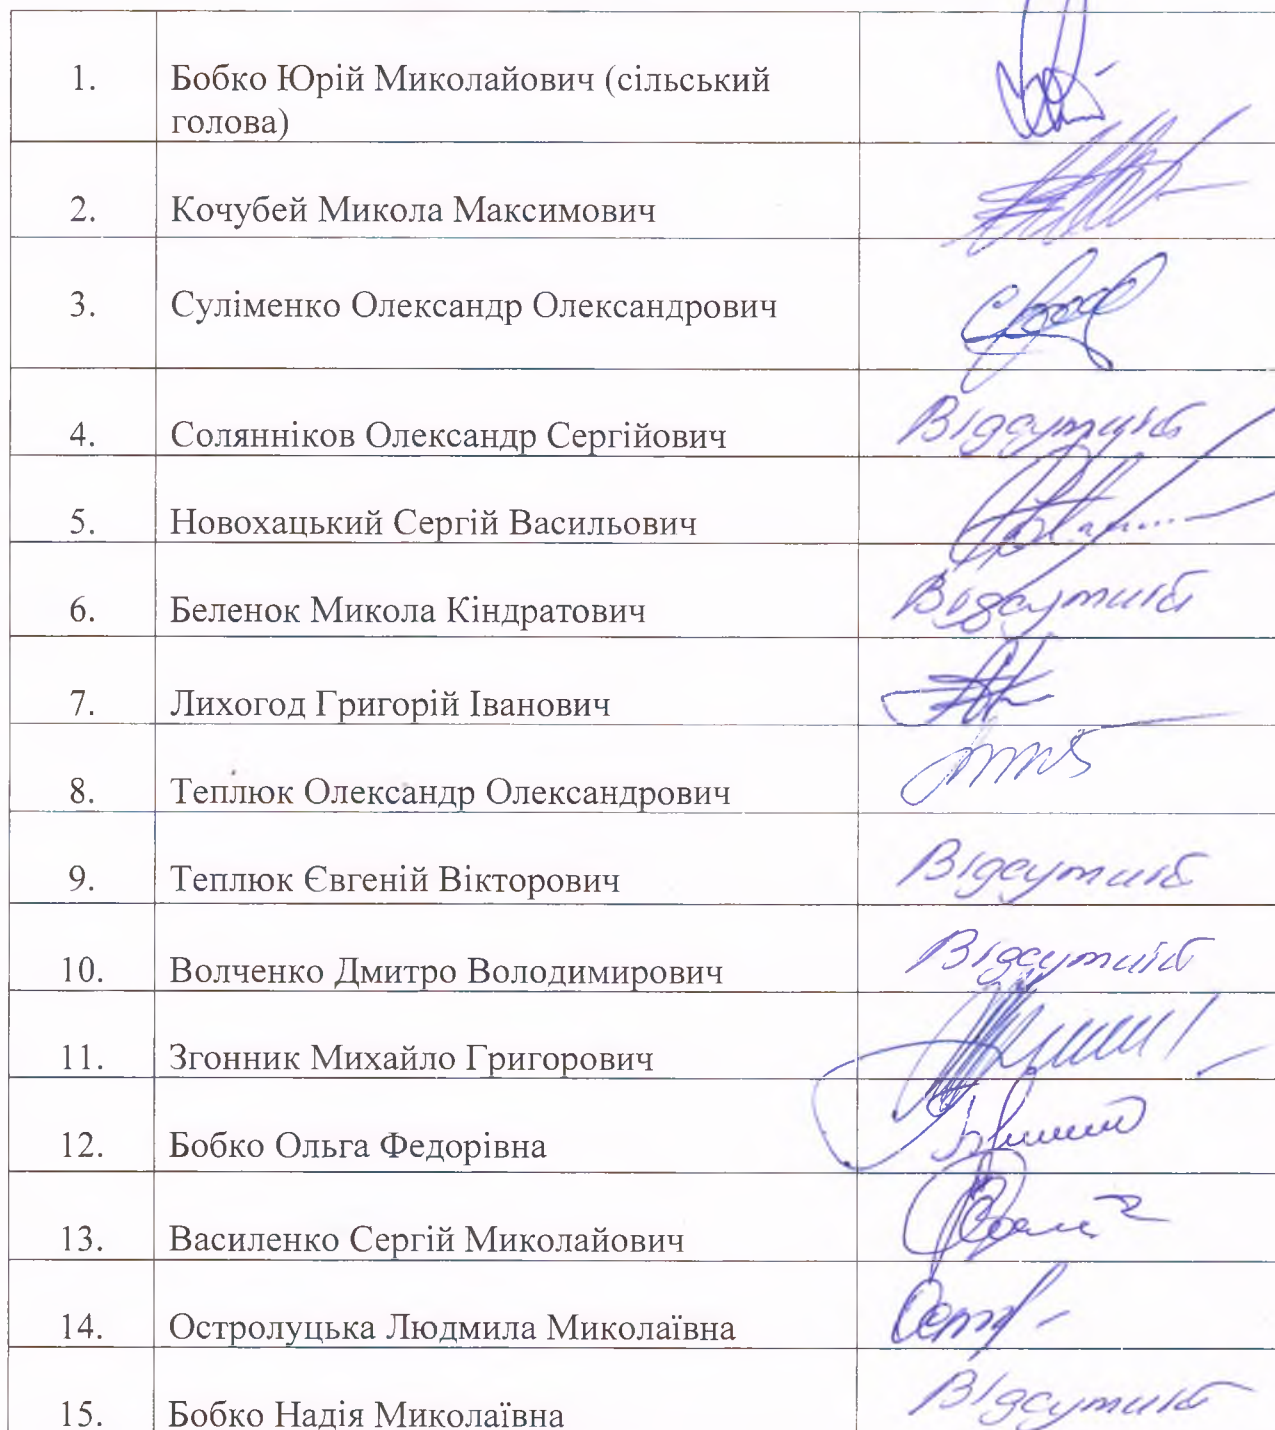 1. Бобко Юрій Миколайович (сільський
голова)
2. Кочубей Микола Максимович
3. Суліменко Олександр Олександрович
4. Солянніков Олександр Сергійович Відсутній
5. Новохацький Сергій Васильович
6. Беленок Микола Кіндратович Відсутній
7. Лихогод Григорій Іванович
8. Теплюк Олександр Олександрович
9. Теплюк Євгеній Вікторович Відсутній
10. Волченко Дмитро Володимирович Відсутній
11. Згонник Михайло Григорович
12. Бобко Ольга Федорівна
13. Василенко Сергій Миколайович
14. Остролуцька Людмила Миколаївна
15. Бобко Надія Миколаївна Відсутній